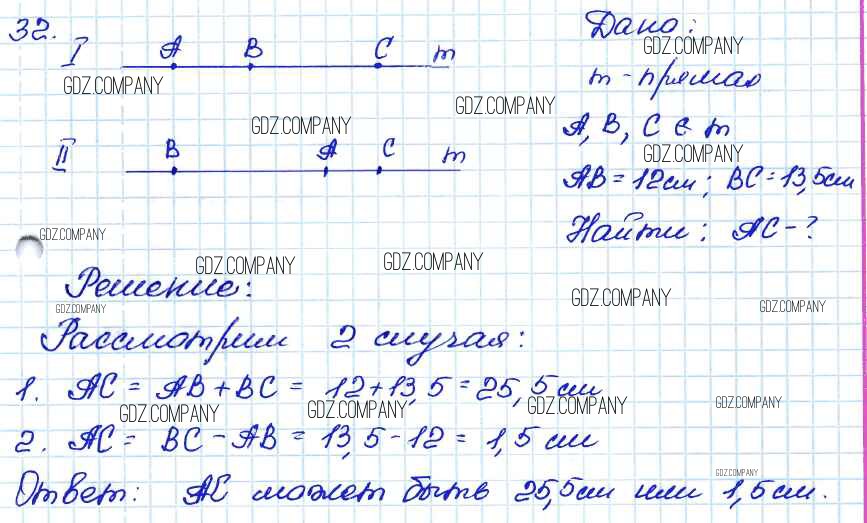 32.
I A B C m
Дано:
GDZ.COMPANY
GDZ.COMPANY
m - прямая
GDZ.COMPANY
GDZ.COMPANY
A, B, C ∈ m
II B A C m
GDZ.COMPANY
AB = 12см; BC = 13,5см
GDZ.COMPANY
Найти: AC - ?
GDZ.COMPANY
GDZ.COMPANY
Решение:
GDZ.COMPANY
GDZ.COMPANY
GDZ.COMPANY
Рассмотрим 2 случая:
1. AC = AB + BC = 12 + 13,5 = 25,5 см
GDZ.COMPANY GDZ.COMPANY GDZ.COMPANY GDZ.COMPANY
2. AC = BC - AB = 13,5 - 12 = 1,5 см
GDZ.COMPANY
Ответ: AC может быть 25,5см или 1,5 см.